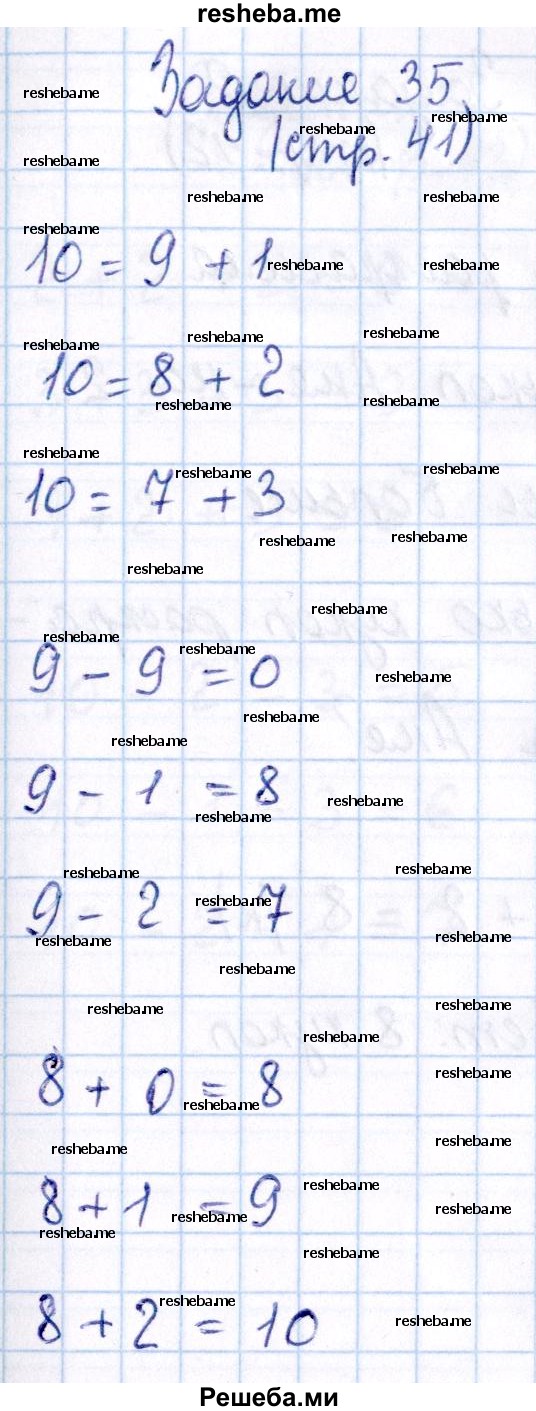 resheba.me
Задание 35
(стр. 41)
10 = 9 + 1
10 = 8 + 2
10 = 7 + 3
9 - 9 = 0
9 - 1 = 8
9 - 2 = 7
8 + 0 = 8
8 + 1 = 9
8 + 2 = 10
Решеба.ми